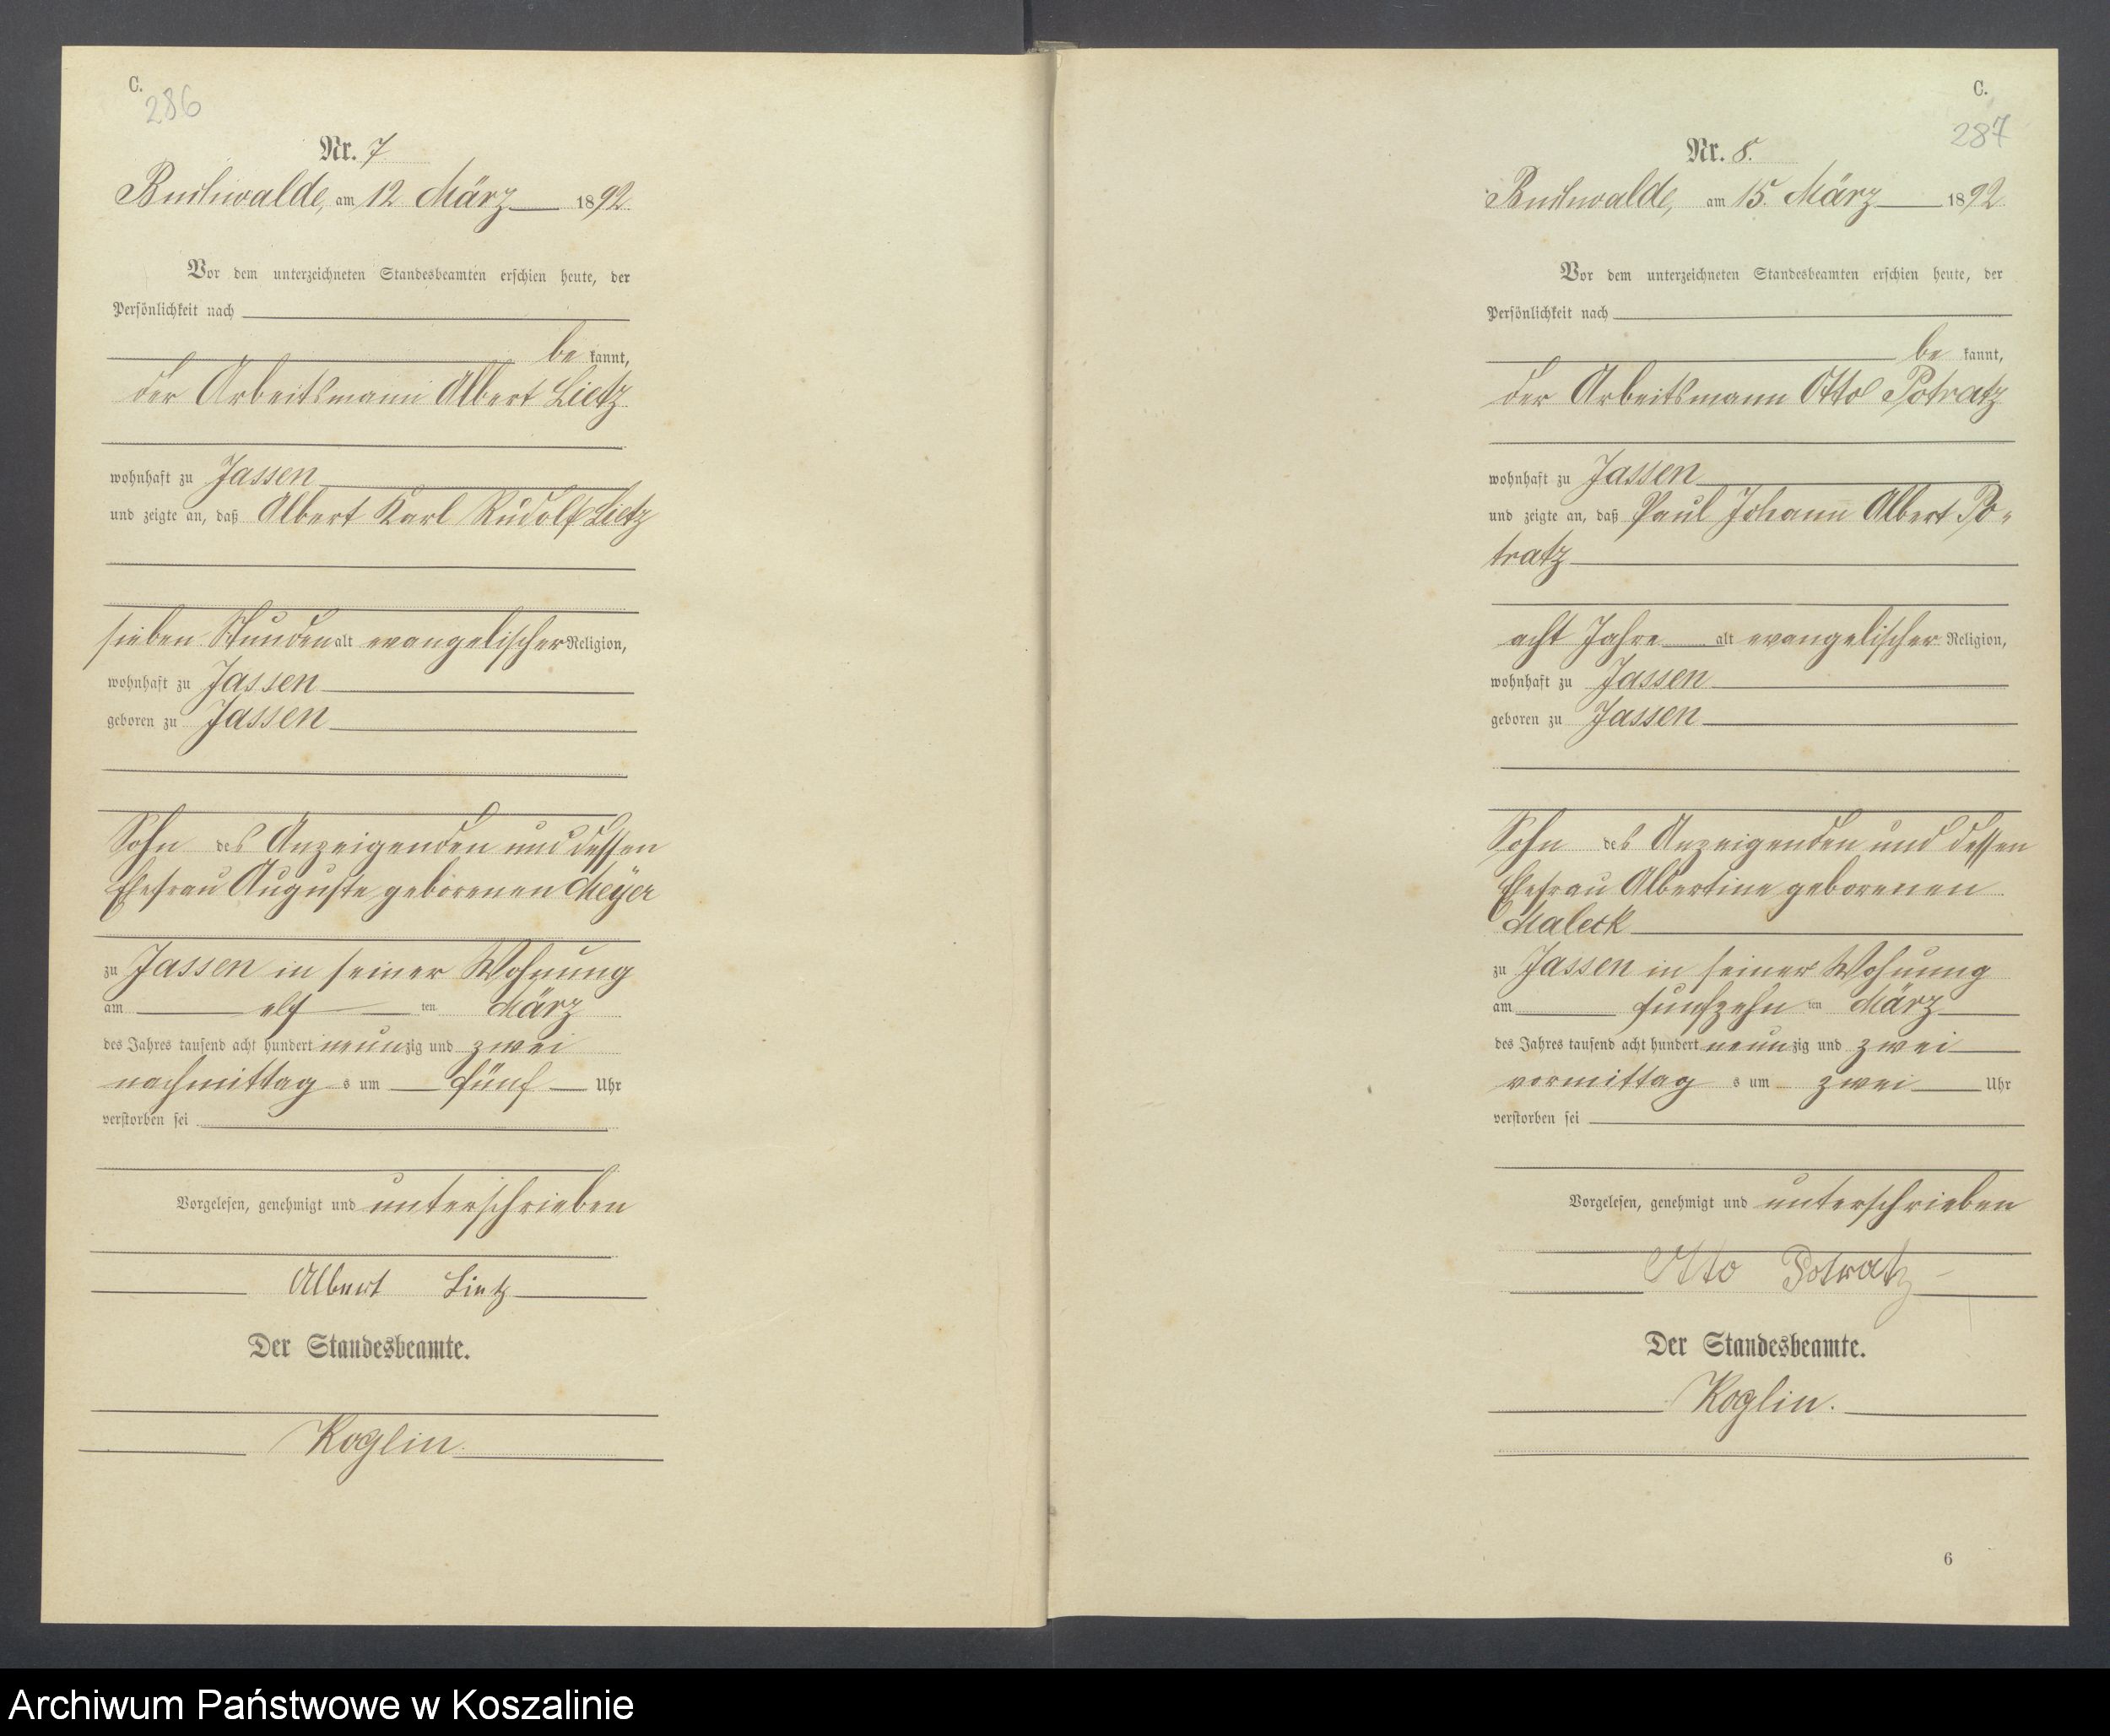 C.
286
Nr. 7
Buchwalde, am 12. März 1892.
Vor dem unterzeichneten Standesbeamten erschien heute, der
Persönlichkeit nach
be kannt,
der Arbeitsmann Albert Lietz
wohnhaft zu Jassen
und zeigte an, daß Albert Karl Rudolf Lietz
sieben Stunden alt evangelischer Religion,
wohnhaft zu Jassen
geboren zu Jassen
Sohn des Anzeigenden und dessen
Ehefrau Auguste geborenen Meyer
zu Jassen in seiner Wohnung
am elf ten März
des Jahres tausend acht hundert neunzig und zwei
nachmittag s um fünf Uhr
verstorben sei
Vorgelesen, genehmigt und unterschrieben
Albert Lietz
Der Standesbeamte.
Koglin.
C.
287
Nr. 8.
Buchwalde, am 15. März 1892.
Vor dem unterzeichneten Standesbeamten erschien heute, der
Persönlichkeit nach
be kannt,
der Arbeitsmann Otto Potratz
wohnhaft zu Jassen
und zeigte an, daß Paul Johann Albert Po-
tratz
acht Jahre alt evangelischer Religion,
wohnhaft zu Jassen
geboren zu Jassen
Sohn des Anzeigenden und dessen
Ehefrau Albertine geborenen
Maleck
zu Jassen in seiner Wohnung
am fünfzehn ten März
des Jahres tausend acht hundert neunzig und zwei
vormittag s um zwei Uhr
verstorben sei
Vorgelesen, genehmigt und unterschrieben
Otto Potratz
Der Standesbeamte.
Koglin.
6
Archiwum Państwowe w Koszalinie